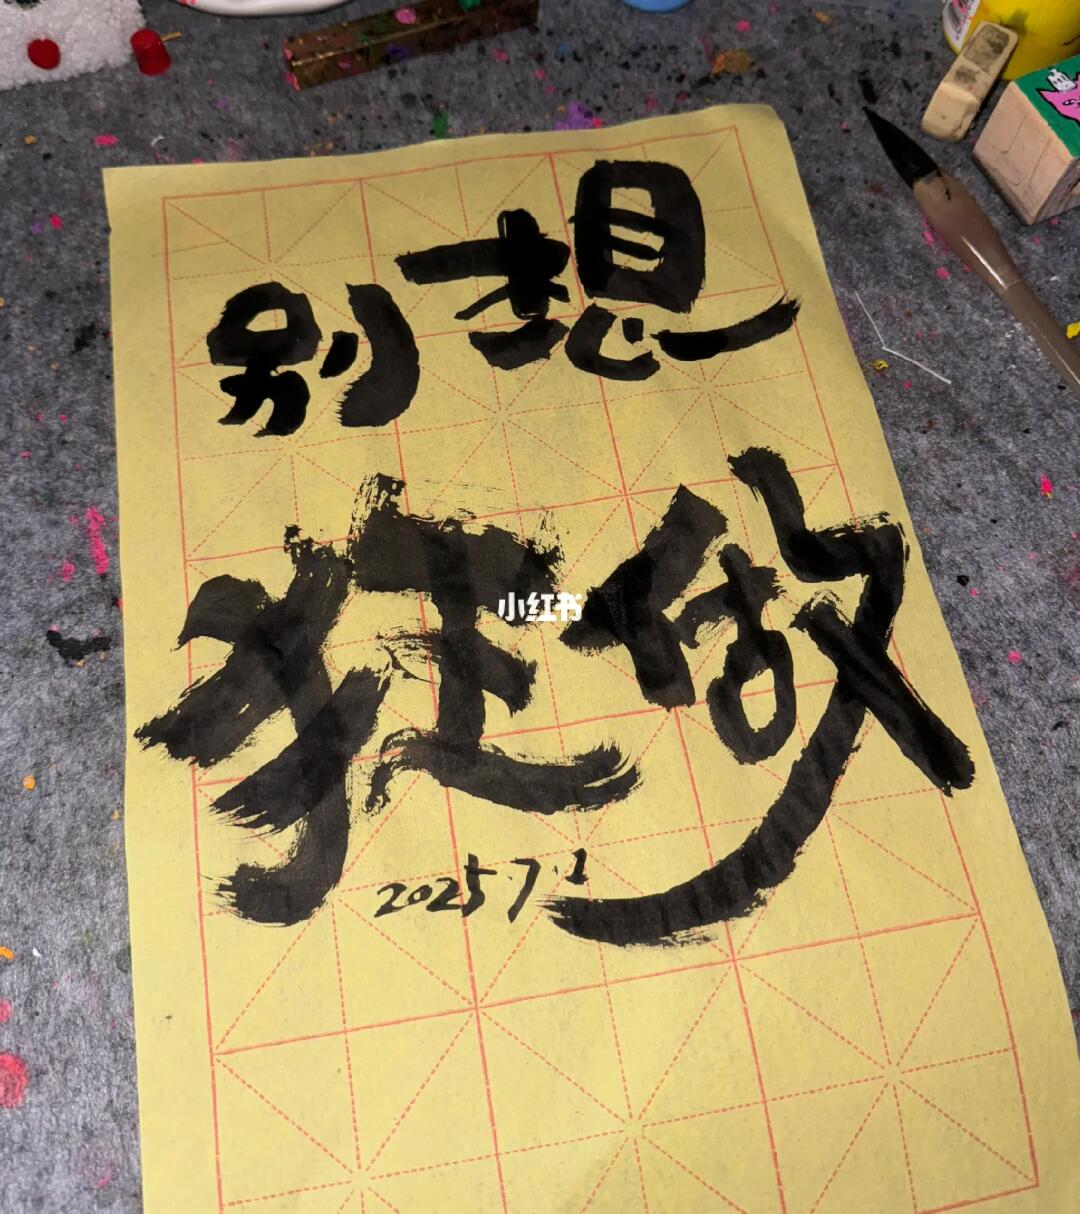 别想
狂做
小红书
2025.7.1